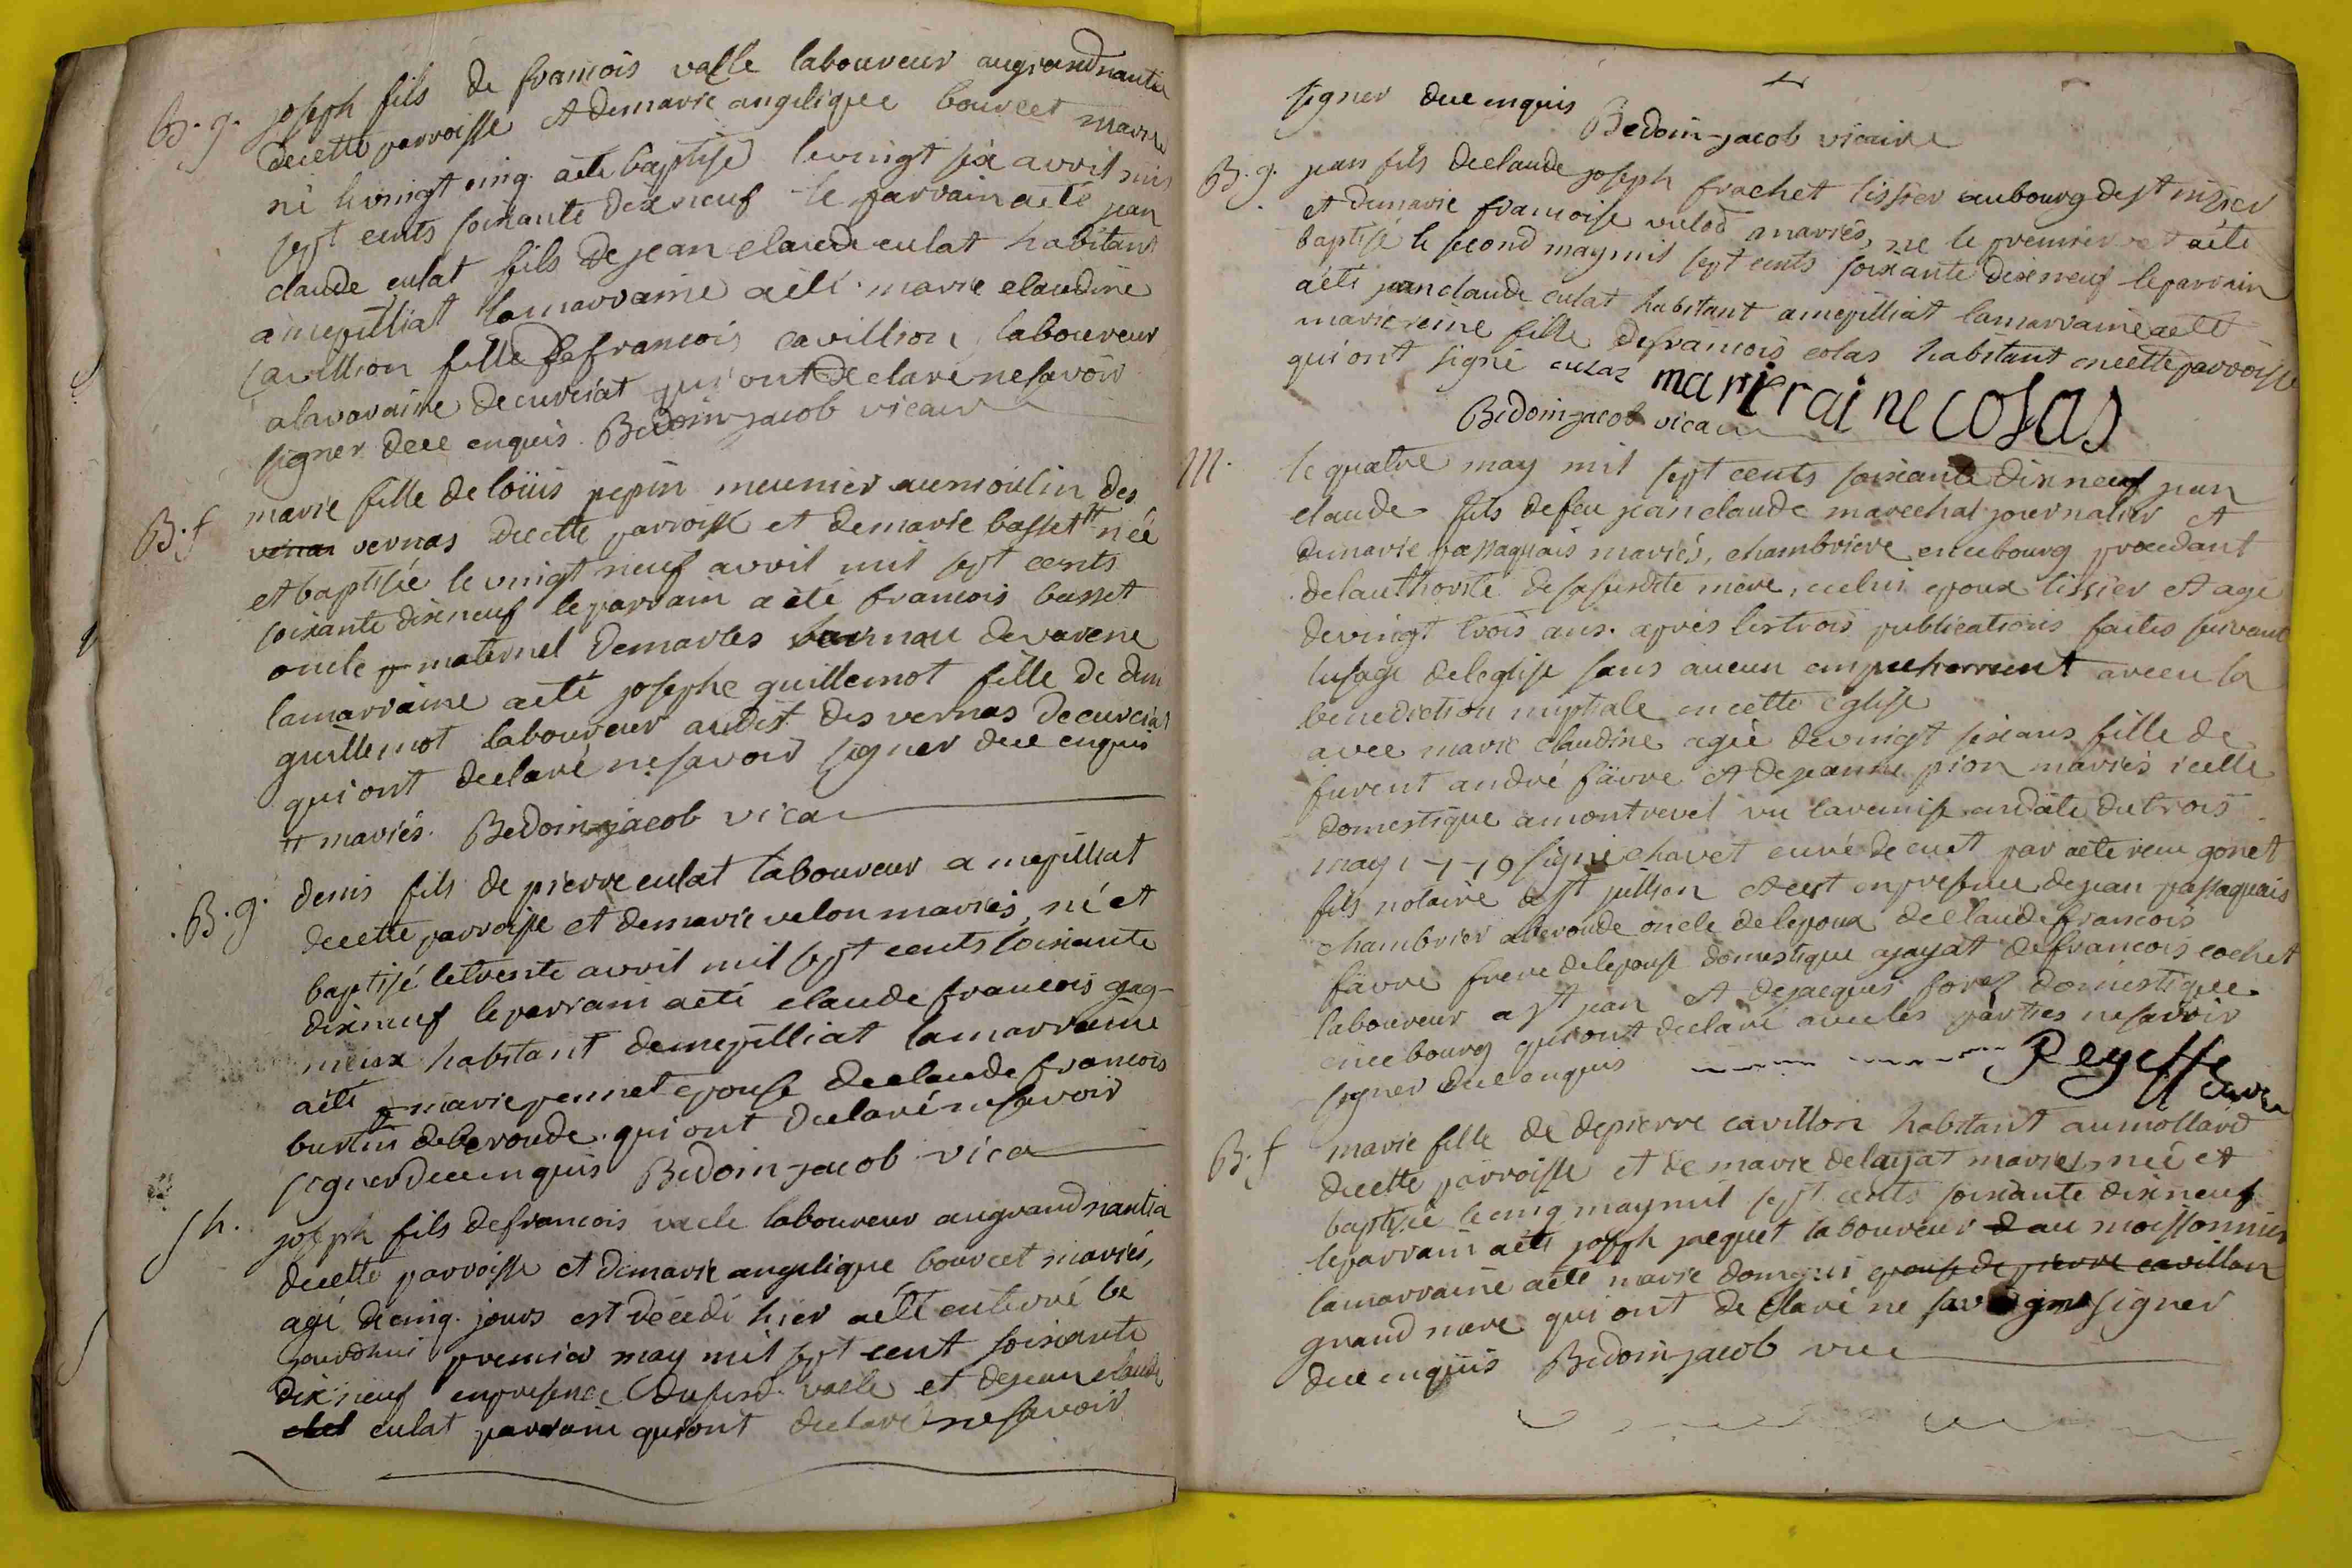 B. g. joseph fils de francois valle laboureur augrandnantia
decette parroisse et demarie angelique bourcet mariés
né levingt cinq. aété baptisé levingt six avril mil
sept cents soixante dixneuf le parrain aété jean
claude culat fils de jean claude culat habitant
amepilliat lamarraine aété. marie claudine
cavillion fille de francois cavillion laboureur
alavaraine decurciat qui ont declaré nesavoir
signer dece enquis. Bedoin-jacob vicair
B. f marie fille de loüis pepin meunier aumoulin des
vernas decette parroisse et demarie basset tt néé
et baptisée levingt neuf avril mil sept cents
soixante dixneuf leparrain a été francois basset
oncle maternel demarbes devarene
lamarraine aété josephe guillemot fille de
guillemot laboureur audit des vernas decurciat
qui ont declaré nesavoir signer dece enquis
tt mariés. Bedoin-jacob vica
B. g. denis fils de pierre culat laboureur a mepilliat
decette parroisse et demarie velon mariés, né et
baptisé letrente avril mil sept cents soixante
dixneuf leparrain aété claude francois gag-
nieux habitant demepilliat lamarraine
aété marie pennet epouse declaude francois
burtin deberoude. qui ont declaré nesavoir
signer dece enquis Bedoin-jacob vica
S h. joseph fils defrancois valle laboureur augrandnantia
decette parroisse et demarie angelique bourcet mariés,
agé decinq. jours est décedé hier aété enterré le
jourdhui premier may mil sept cent soixante
dix neuf enpresence dususd. valle et dejean claude
culat parrain qui ont declaré nesavoir
signer dece enquis
Bedoin-jacob vicaire
B. g. jean fils declaude joseph frachet tissier aubourg de st nizier
et demarie francoise vulod mariés, né le premier et aété
baptisé le second may mil sept cents soixante dixneuf leparrain
aété jean claude culat habitant amepilliat lamarraine aété
marie reine fille defrancois colas habitant encette parroisse
qui ont signé culat marierainecolas
Bedoin-jacob vicair
M. le quatre may mil sept cents soixante dix neuf jean
claude fils de feu jean claude marechal journalier et
demarie passaquais mariés, chambriere encebourg procedant
delauthorité desasusdite mere, celui epoux tissier et agé
devingt trois ans. aprés lestrois publications faites suivant
lusage deleglise sans aucun empechement areçu la
benediction nuptiale en cette eglise
avec marie claudine agée devingt sixans fille de
furent andré fâvre et dejeanne pion mariés icelle
domestique amontrevel vu laremise endate dutrois
may 1779 signé chavet curé de cuet par acte reçu gonet
fils notaire de st jullien et cest enpresence dejean passaquais
chambrier aberoude oncle delepoux declaude francois
fâvre frere delepouse domestique ajayat defrancois cochet
laboureur a st jean et dejacques forez domestique
ence bourg qui ont declaré avec les parties nesavoir
signer dece enquis Reyesse curé
B. f marie fille de depierre cavillon habitant aumollard
decette parroisse et de marie delayat mariés, née et
baptisée lecinq may mil sept cents soixante dixneuf
leparrain aété joseph jacquet laboureur au moissonnier
lamarraine aété marie epouse de pierre cavillon
grand mere qui ont declaré ne signer
dece enquis Bedoin-jacob vic